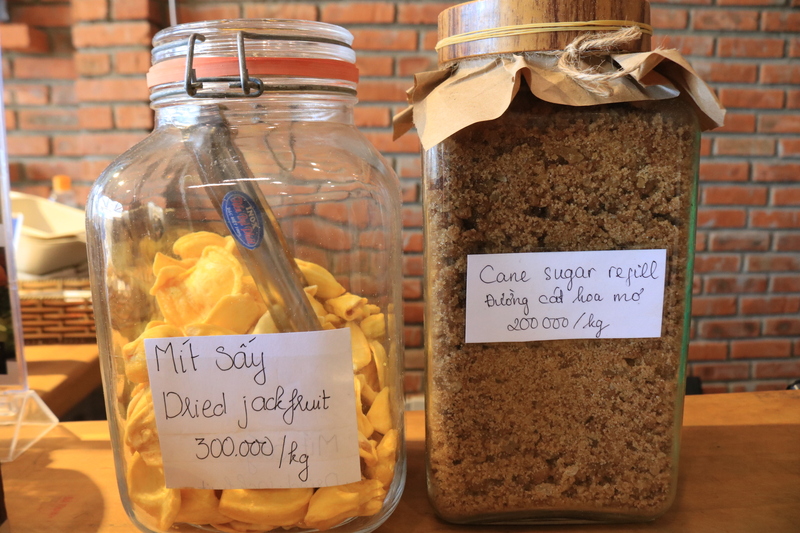 Mít Sấy
Dried jackfruit
300.000/kg
Cane sugar refill
Đường cát hoa mơ
200000/kg
INOX